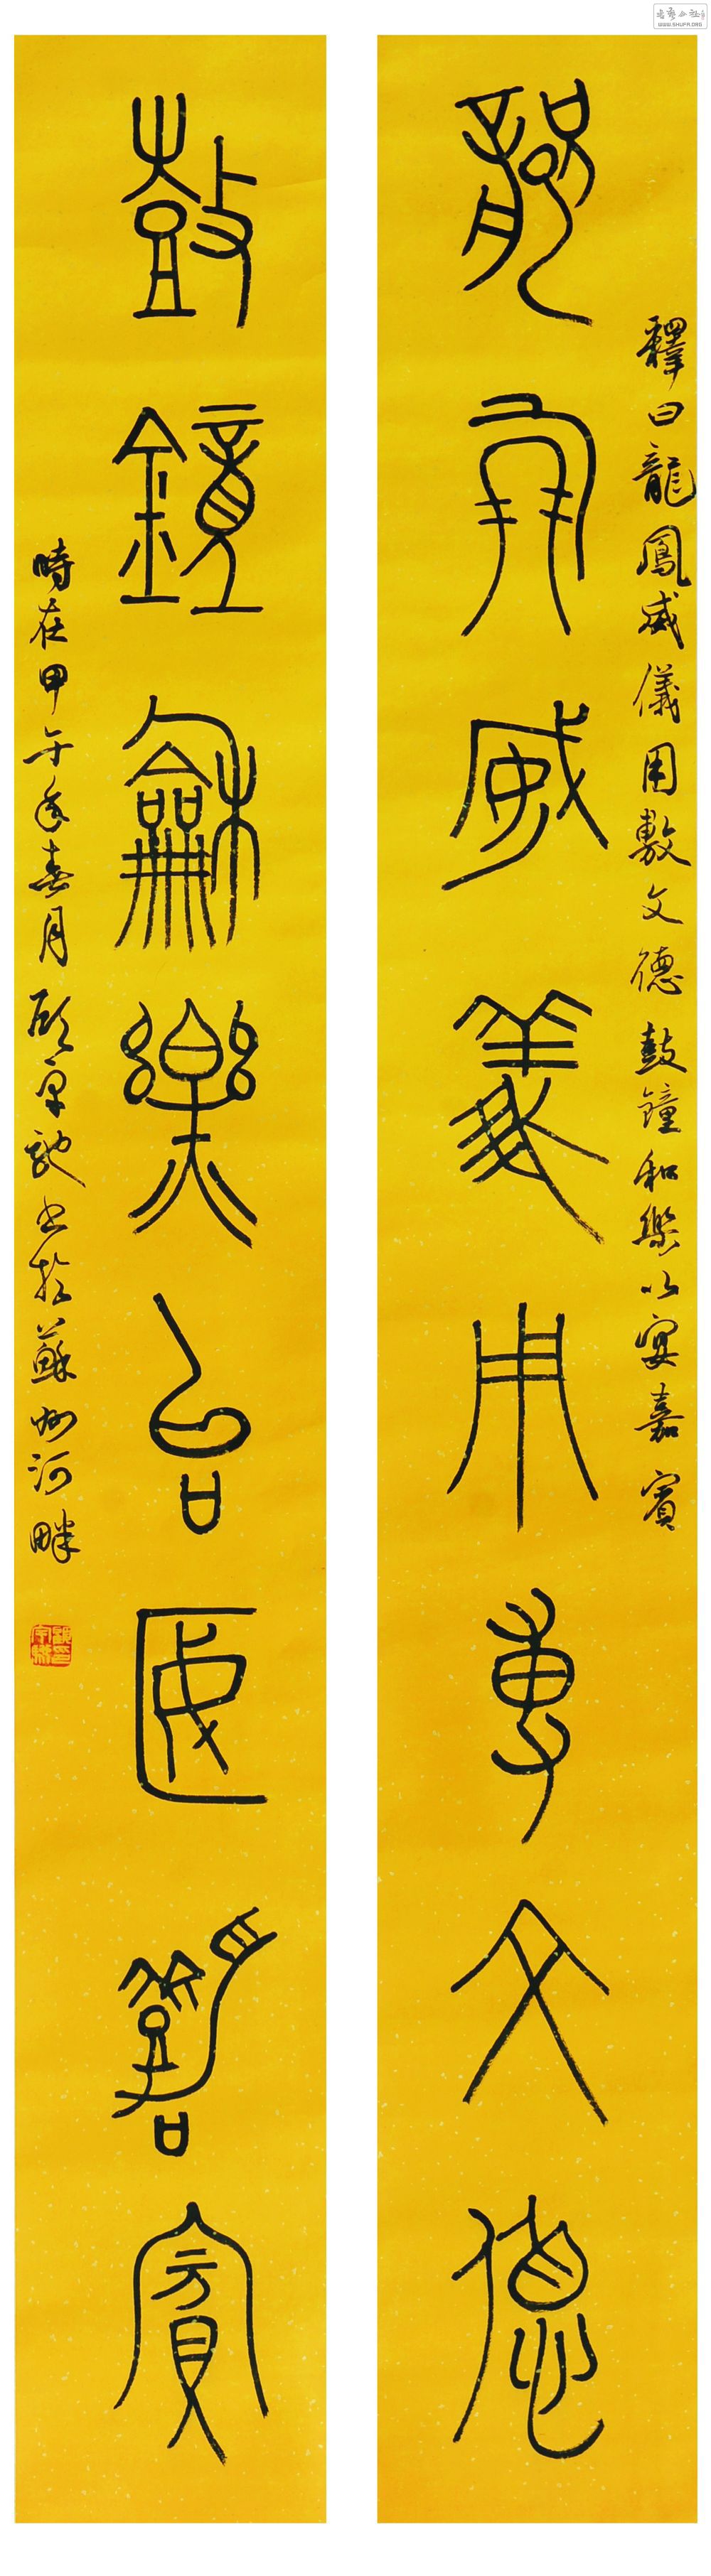 釋曰龍鳳威儀用敷文德鼓鐘和樂以宴嘉賓
龍鳳威義用尃文德
鼓鐘龢樂台匽嘉賓
時在甲午年春月顧書於蘇州河畔
WWW.SHUFA.ORG